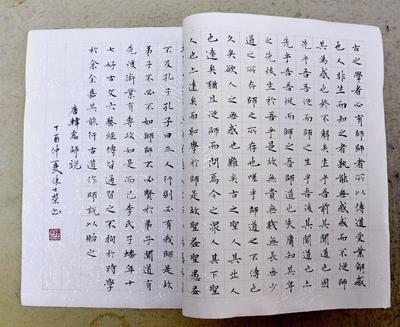 古之學者必有師師者所以傳道受業解惑
也人非生而知之者孰能無惑惑而不從師
其為惑也終不解矣生乎吾前其聞道也固
先乎吾吾從而師之生乎吾後其聞道也亦
先乎吾吾從而師之吾師道也夫庸知其年
之先後生於吾乎是故無貴無賤無長無少
道之所存師之所存也嗟乎師道之不傳也
久矣欲人之無惑也難矣古之聖人其出人
也遠矣猶且從師而問焉今之眾人其下聖
人也亦遠矣而恥學於師是故聖益聖愚益
不及孔子孔子曰三人行則必有我師是故
弟子不必不如師師不必賢於弟子聞道有
先後術業有專攻如是而已李氏子蟠年十
七好古文六藝經傳皆通習之不拘於時學
於余余嘉其能行古道作師說以貽之
唐韓愈師說
丁酉仲夏